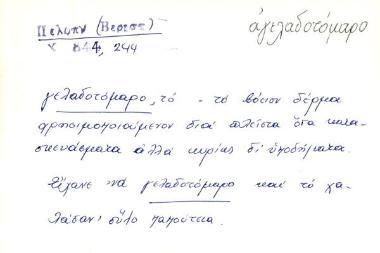 Πελοπν (Βερεστ)
Χ 844, 244
ἀγελαδοτόμαρο
γελαδοτόμαρο, τό - τό βόειον δέρμα
χρησιμοποιούμενον διά πλεῖστα ὅσα κατα-
σκευάσματα ἀλλά κυρίως δι' ὑποδήματα.
Εἴχανε νά γελαδοτόμαρο καί τό χα-
λάσαν' οὖλο παπούτσια.